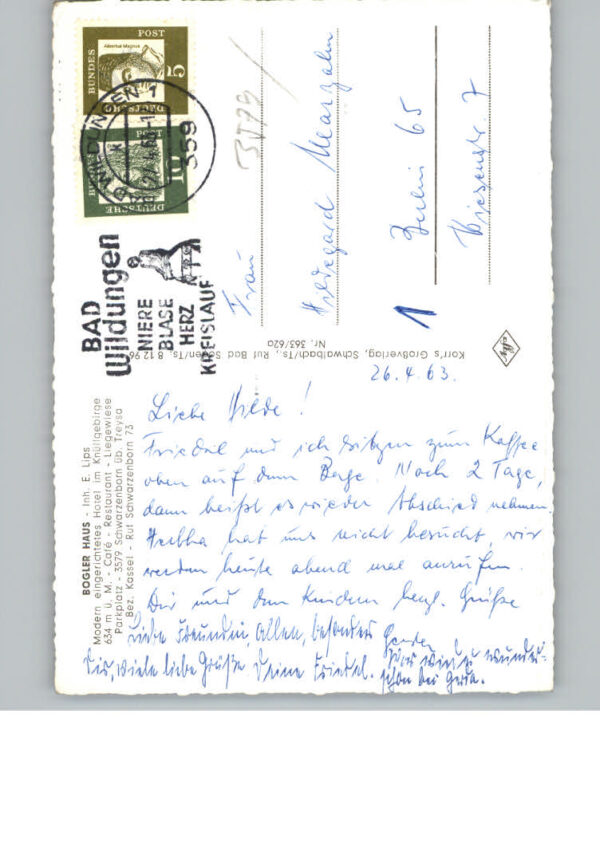 Albertus Magnus
POST
5
DEUTSCHE
BUNDES
POST
10
DEUTSCHE
WILDUNGEN 1
359
BAD
Wildungen
NIERE
BLASE
HERZ
KREISLAUF
3579
Frau
Hildegard
Berlin 65
7
1
Korr's Großverlag, Schwalbach/Ts., Ruf Bad Soden/Ts. 8 12 96
Nr. 363/62a
BOGLER HAUS - Inh. E. Lips
Modern eingerichtetes Hotel im Knüllgebirge
634 m ü. M. - Café - Restaurant - Liegewiese
Parkplatz - 3579 Schwarzenborn üb. Treysa
Bez. Kassel - Ruf Schwarzenborn 73
26.4.63.
Liebe Hilde!
Friedel und ich sitzen zum Kaffee
oben auf dem Berge. Noch 2 Tage,
dann heißt es wieder Abschied nehmen.
hat uns nicht besucht, wir
werden heute abend mal anrufen.
Dir und den Kindern herzl. Grüße
Gerda
Liebe Freundin, allen, besonders
Dir, viele liebe Grüße Deine Friedel.
wunder-
schön bei Gerda.